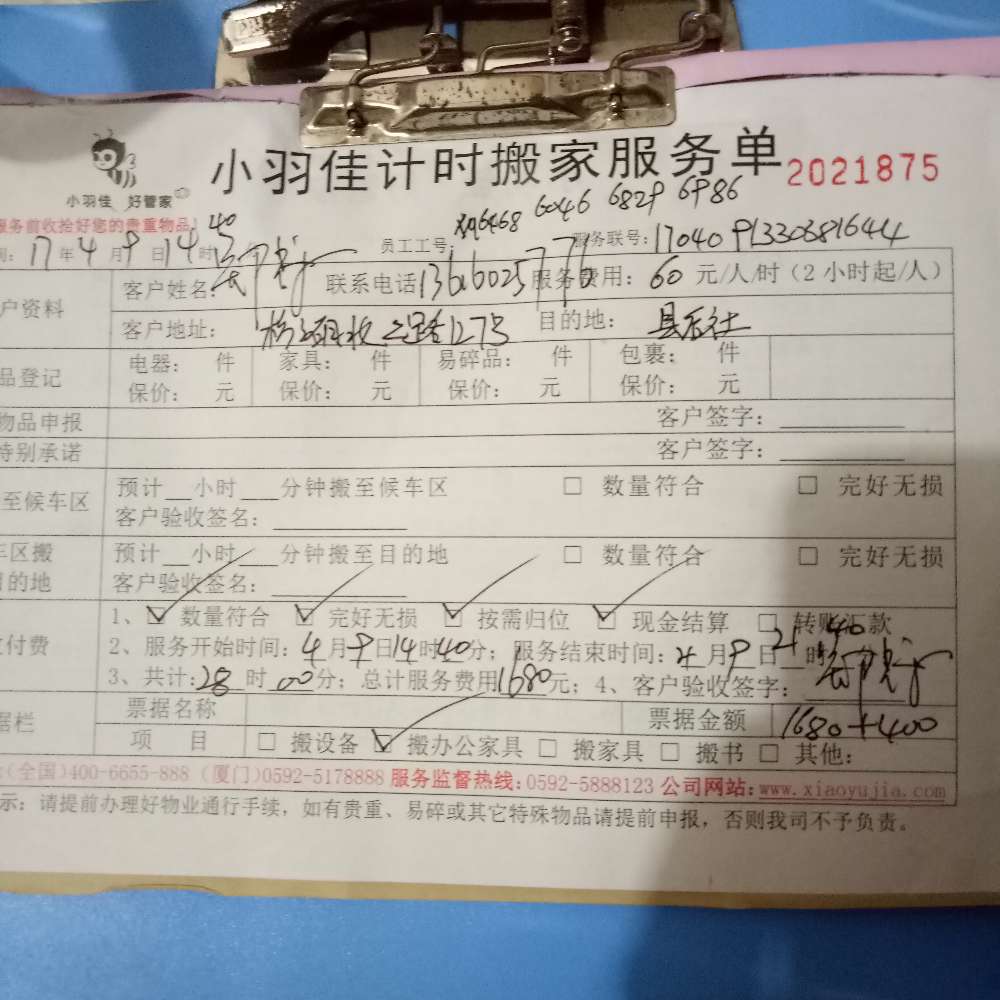 小羽佳计时搬家服务单 2021875
小羽佳 好管家
服务前收拾好您的贵重物品！
6468 6046 6829 6986
17年4月9日14时40 员工工号 服务联号：17040913308816444
户资料 客户姓名： 联系电话 服务费用：60元/人/时（2小时起/人）
客户地址： 127号 目的地：县后社
品登记 电器： 件 家具： 件 易碎品： 件 包裹： 件
保价： 元 保价： 元 保价： 元 保价： 元
物品申报 客户签字：
特别承诺 客户签字：
至候车区 预计 小时 分钟搬至候车区 □ 数量符合 □ 完好无损
客户验收签名：
车区搬 预计 小时 分钟搬至目的地 □ 数量符合 □ 完好无损
目的地 客户验收签名：
1、☑ 数量符合 ☑ 完好无损 ☑ 按需归位 ☑ 现金结算 □ 转账汇款
付费 2、服务开始时间：4月9日14时40分；服务结束时间：4月9日21时40分
3、共计：28时00分；总计服务费用1680元；4、客户验收签字：
据栏 票据名称 票据金额 1680+400
项 目 □ 搬设备 ☑ 搬办公家具 □ 搬家具 □ 搬书 □ 其他：
(全国)400-6655-888 (厦门)0592-5178888 服务监督热线：0592-5888123 公司网站：www.xiaoyujia.com
示：请提前办理好物业通行手续，如有贵重、易碎或其它特殊物品请提前申报，否则我司不予负责。